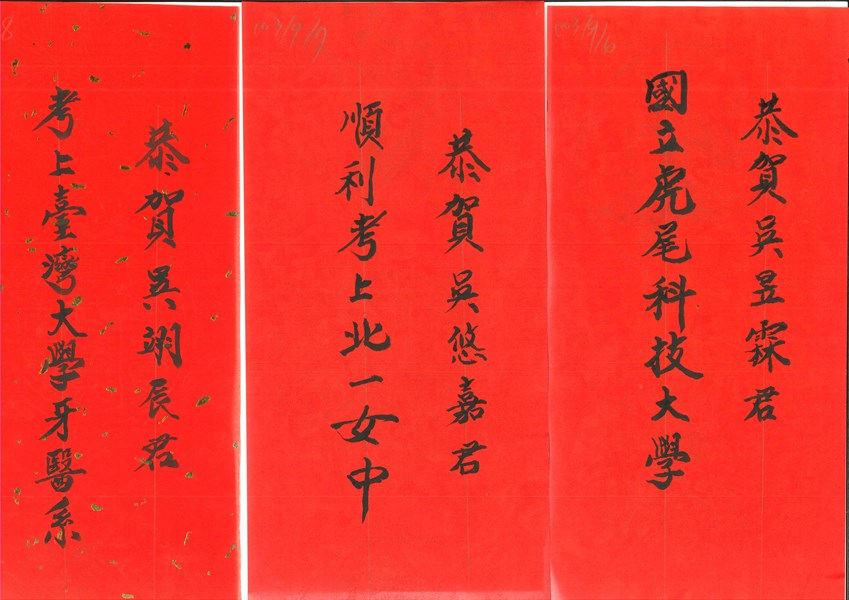 恭賀吳昱霖君
國立虎尾科技大學
恭賀吳悠嘉君
順利考上北一女中
恭賀吳翊辰君
考上臺灣大學牙醫系